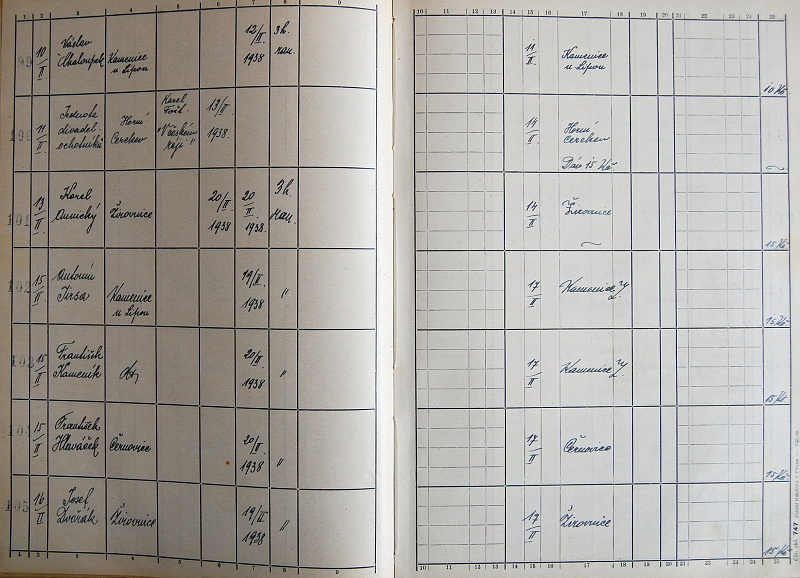 1 2 3 4 5 6 7 8 9
10 11 12 13 14 15 16 17 18 19 20 21 22 23 24 25
99 10/II Václav Chaloupek Kamenice n Lipou 12/II. 1938 3h. ran.
11/II. Kamenice n Lipou 10 Kč
100 11/II. Jednota divadel. ochotníků Horní Cerekev Karel Fořt "V českém ráji" 13/II. 1938.
14/II Horní Cerekev
Dáv. 15 Kč.
101 13/II. Karel Žirovnice 20/II. 1938 20/II 1938. 3h. ran.
14/II Žirovnice 15 Kč
102 15/II. Antonín Jirsa Kamenice n Lipou 19/II. 1938 "
17/II Kamenice n/L. 15 Kč
103 15/II František Kameník 20/II. 1938 "
17/II Kamenice n/L. 15 Kč
104 15/II František Hlaváček Černovice 20/II. 1938 "
17/II Černovice 15 Kč
105 16/II Josef Dvořák Žirovnice 19/II 1938 "
17/II Žirovnice 15 Kč
1 2 3 4 5 6 7 8 9
10 11 12 13 14 15 16 17 18 19 20 21 22 23 24 25
747